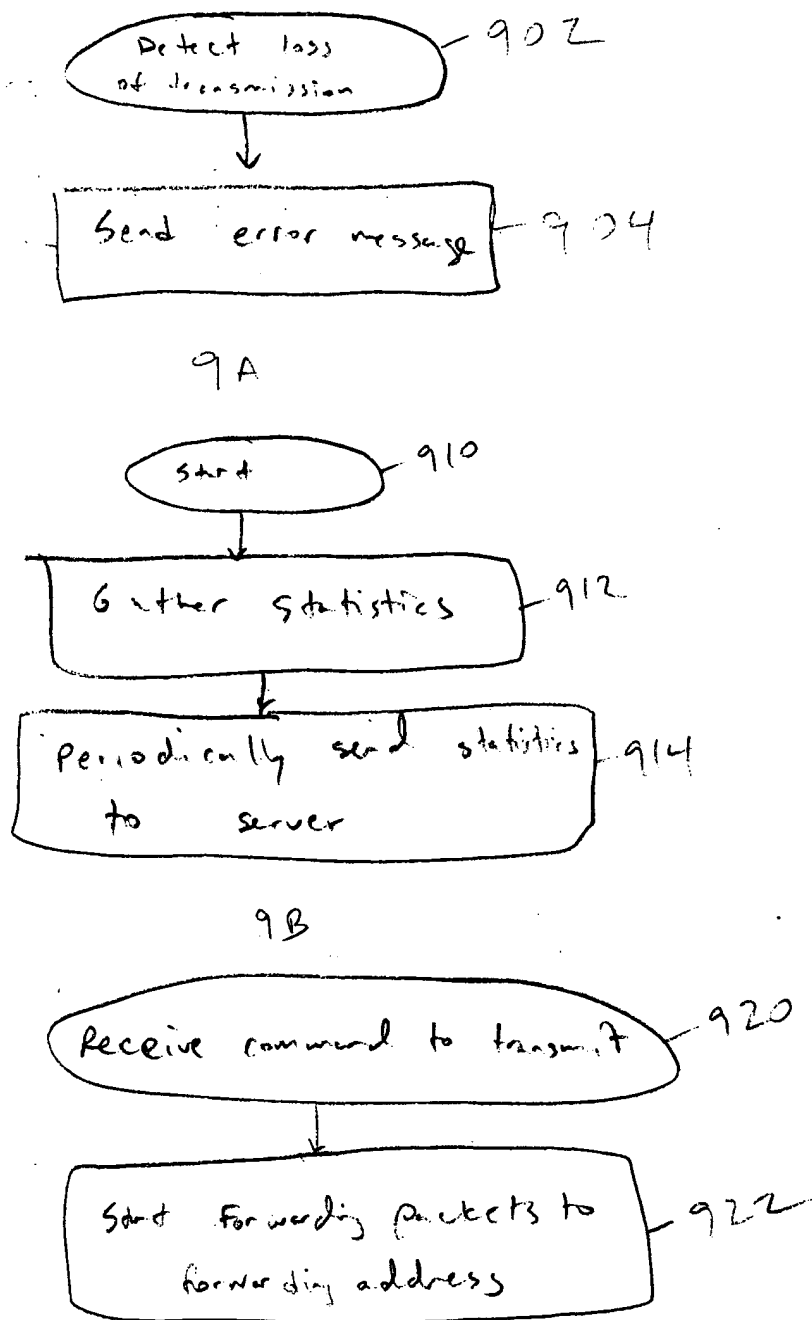 Detect loss
of transmission
902
Send error message
904
9A
Start
910
Gather statistics
912
Periodically send statistics
to server
914
9B
Receive command to transmit
920
Start forwarding packets to
forwarding address
922